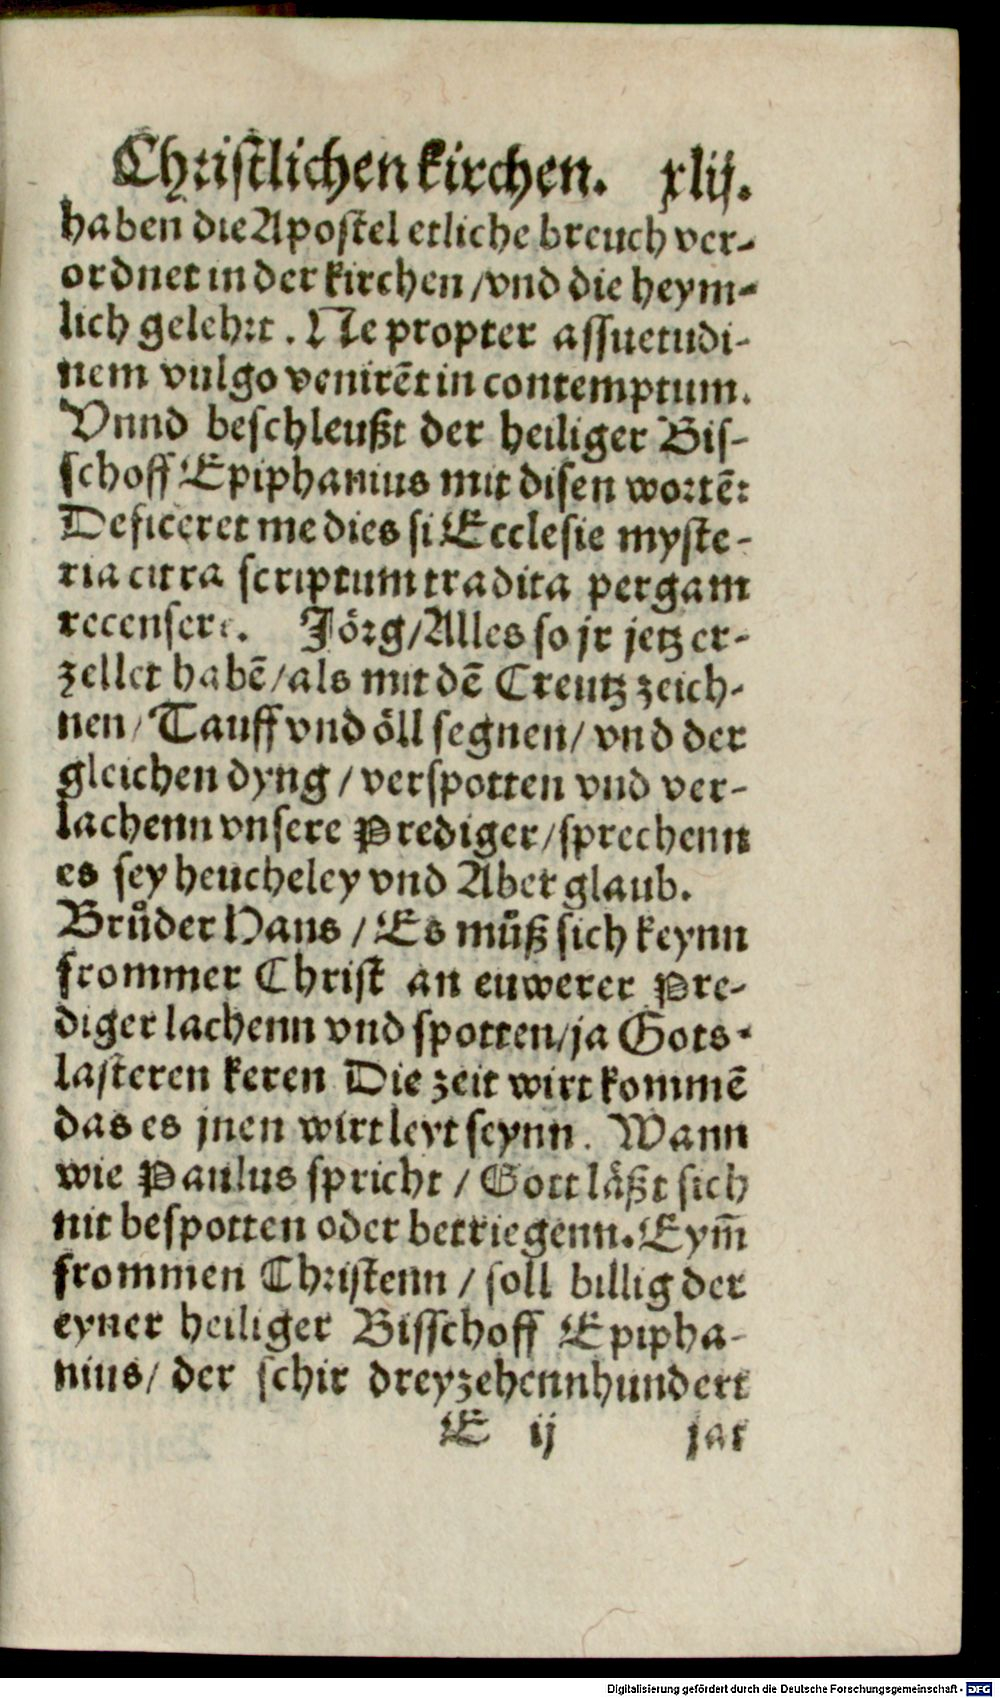 Christlichen kirchen. xlij.
haben die Apostel etliche breuch ver-
ordnet in der kirchen /vnd die heym-
lich gelehrt . Ne propter assuetudi-
nem vulgo venirēt in contemptum.
Vnnd beschleußt der heiliger Bis-
schoff Epiphanius mit disen wortē:
Deficeret me dies si Ecclesie myste-
ria citra scriptum tradita pergam
recensere. Jörg/Alles so jr jetz er-
zellet habē/als mit dē Creutz zeich-
nen/ Tauff vnd öll segnen/ vnd der
gleichen dyng / verspotten vnd ver-
lachenn vnsere Prediger/sprechenn
es sey heucheley vnd Aber glaub.
Brůder Hans / Es můß sich keynn
frommer Christ an euwerer Pre-
diger lachenn vnd spotten/ja Gots-
lasteren keren Die zeit wirt kommē
das es jnen wirt leyt seynn. Wann
wie Paulus spricht / Gott läßt sich
nit bespotten oder betriegenn. Eym̄
frommen Christenn / soll billig der
eyner heiliger Bisschoff Epipha-
nius/ der schir dreyzehennhundert
E ij jar
Digitalisierung gefördert durch die Deutsche Forschungsgemeinschaft - DFG